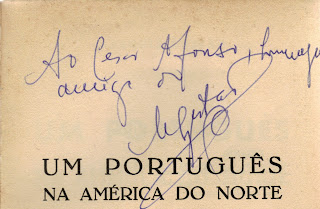 Ao Cesar Afonso, homenagem
amiga do
UM PORTUGUÊS
NA AMÉRICA DO NORTE